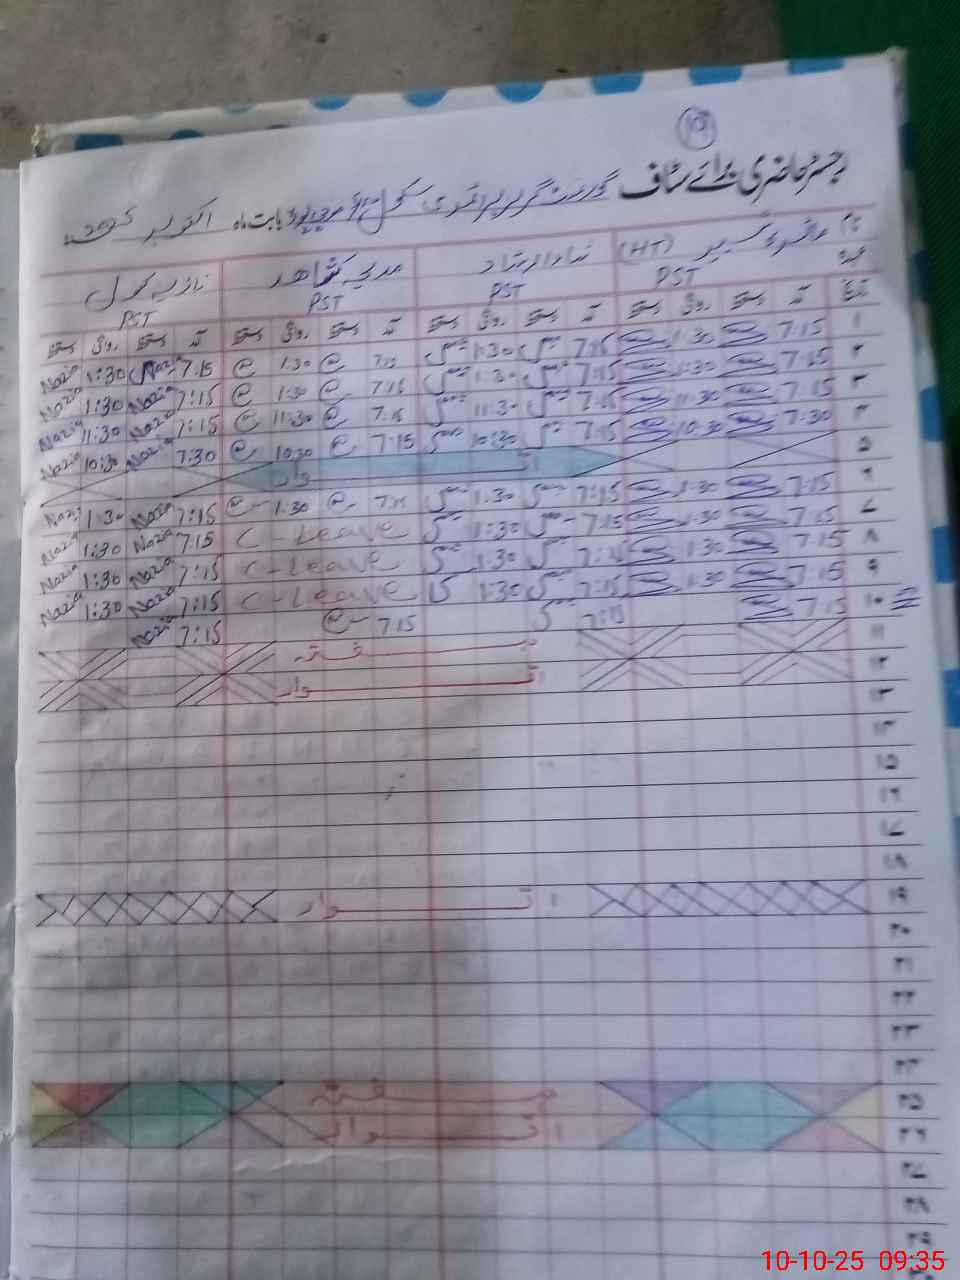 (10)
رجسٹر حاضری برائے سٹاف گورنمنٹ گرلز پرائمری سکول بابت ماہ اکتوبر 2025ء
نام (HT) ندا ارشاد مدیحہ شاہد نازیہ کنول
عہدہ PST PST PST PST
تاریخ آمد دستخط روانگی دستخط آمد دستخط روانگی دستخط آمد دستخط روانگی دستخط آمد دستخط روانگی دستخط
۱ 7:15 1:30 7:15 1:30 7:15 1:30 7:15 Nazia 1:30 Nazia
۲ 7:15 1:30 7:15 1:30 7:15 1:30 7:15 Nazia 1:30 Nazia
۳ 7:15 11:30 7:15 11:30 7:15 11:30 7:15 Nazia 11:30 Nazia
۴ 7:30 10:30 7:15 10:30 7:15 10:30 7:30 Nazia 10:30 Nazia
۵ اتوار
۶ 7:15 1:30 7:15 1:30 7:15 1:30 7:15 Nazia 1:30 Nazia
۷ 7:15 1:30 7:15 1:30 C-Leave 7:15 Nazia 1:30 Nazia
۸ 7:15 1:30 7:15 1:30 C-Leave 7:15 Nazia 1:30 Nazia
۹ 7:15 1:30 7:15 1:30 C-Leave 7:15 Nazia 1:30 Nazia
۱۰ 7:15 7:15 7:15 7:15 Nazia
۱۱ ہفتہ
۱۲ اتوار
۱۳
۱۴
۱۵
۱۶
۱۷
۱۸
۱۹ اتوار
۲۰
۲۱
۲۲
۲۳
۲۴
۲۵ ہفتہ
۲۶ اتوار
۲۷
۲۸
۲۹
10-10-25 09:35